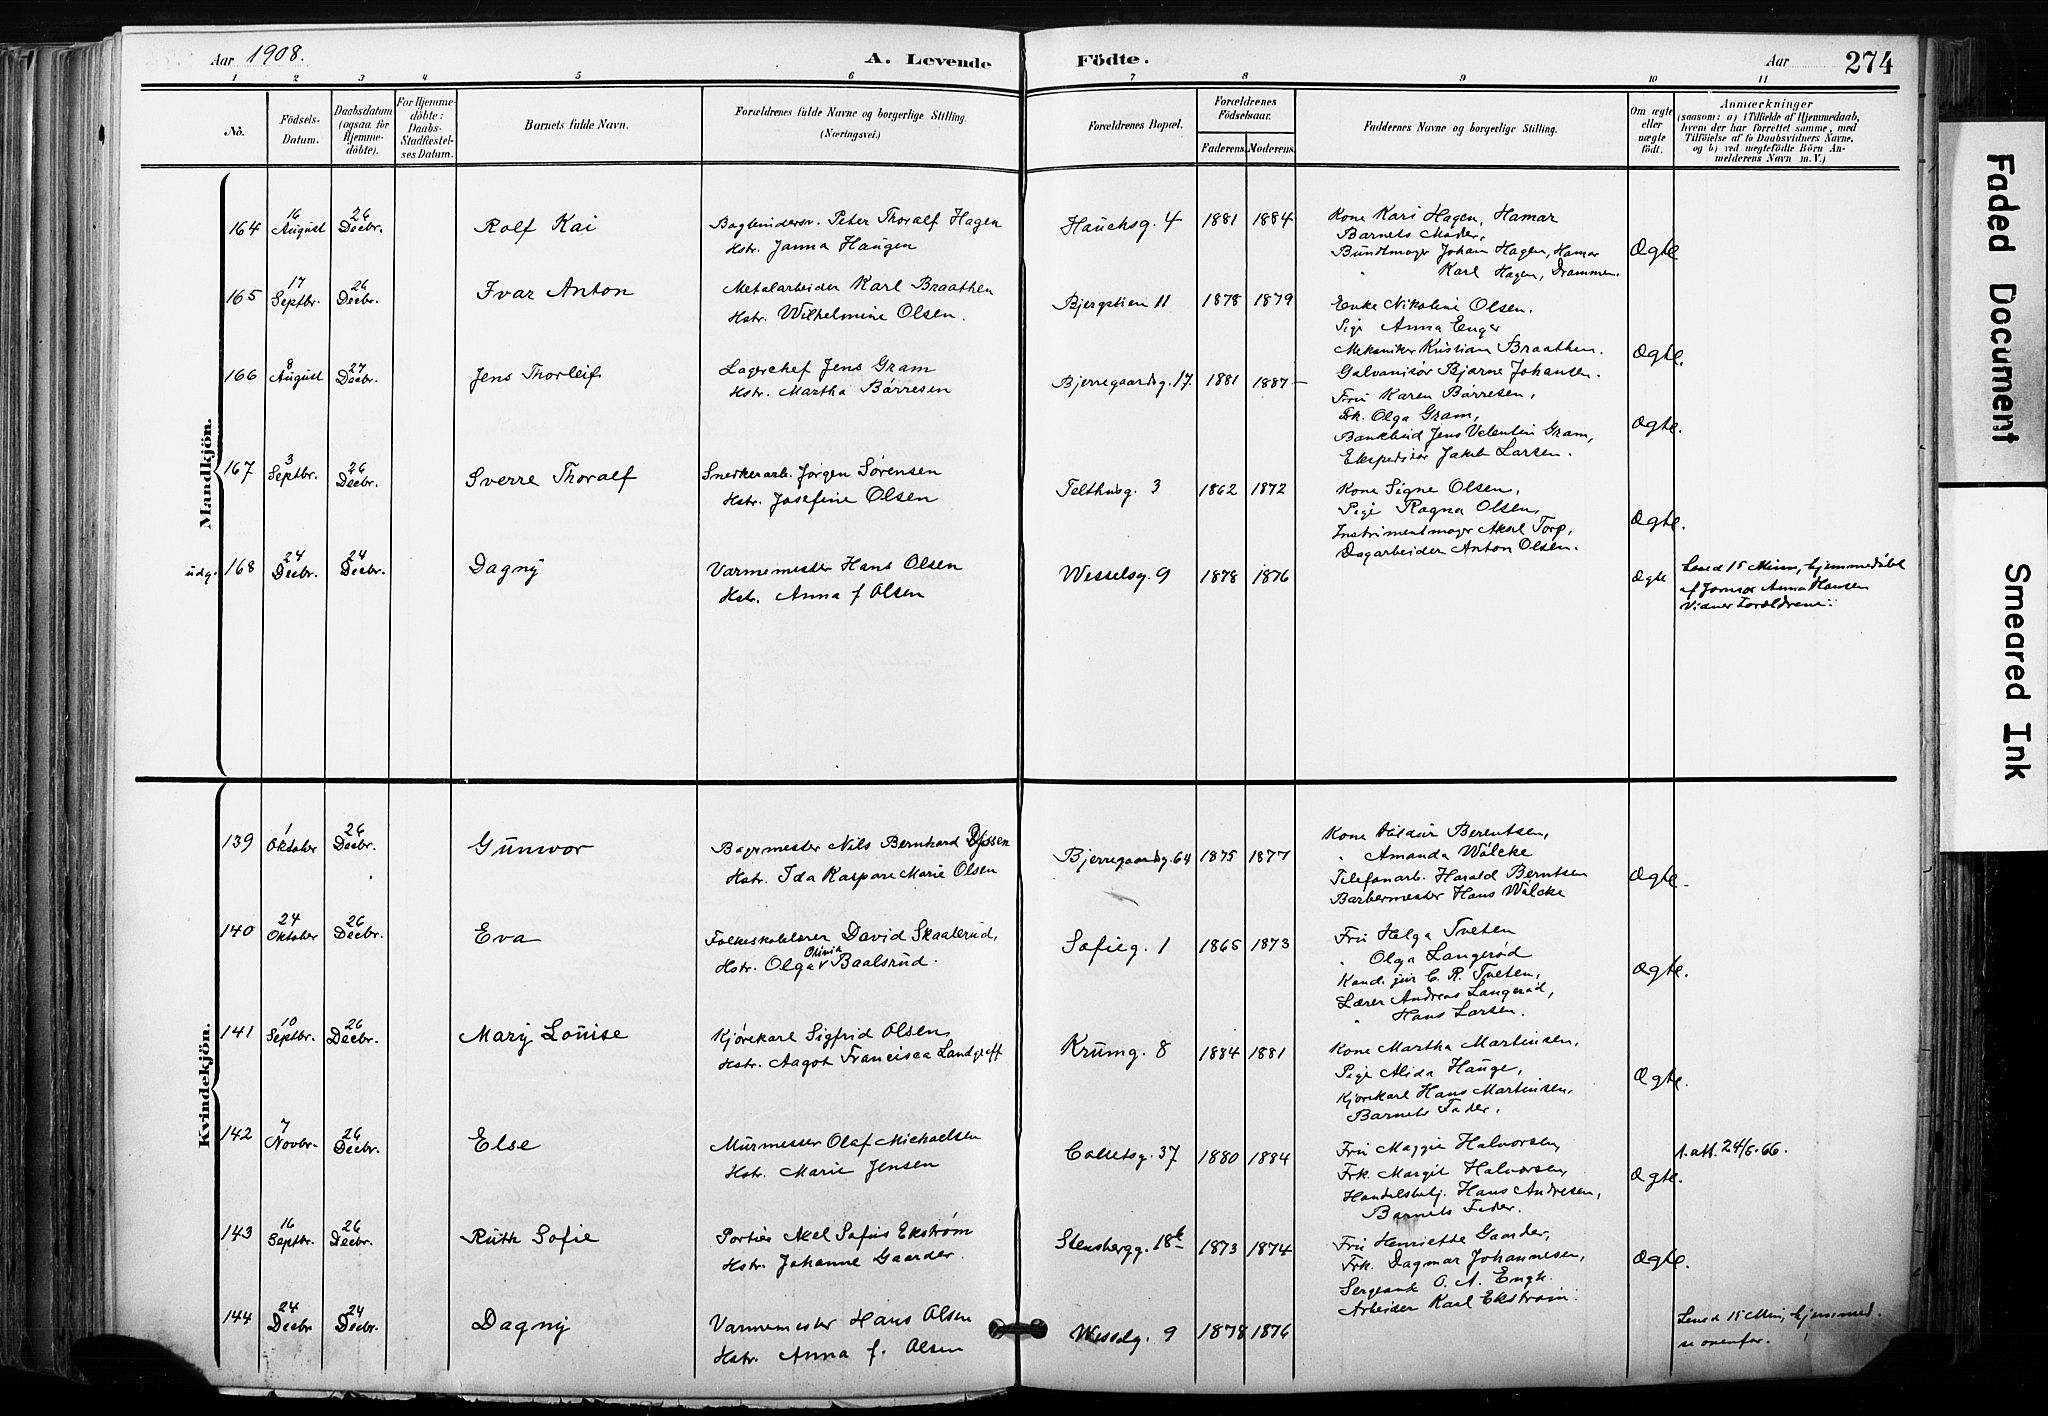 Aar 1908.
A. Levende
Födte.
Aar
274
1 2 3 4 5 6 7 8 9 10 11
No.
Födsels-Datum.
Daabsdatum (ogsaa for Hjemme-döbte).
For Hjemme-döbte: Daabs-Stadfæstel-ses Datum.
Barnets fulde Navn.
Forældrenes fulde Navne og borgerlige Stilling.
(Næringsvei.)
Forældrenes Bopæl.
Forældrenes Födselsaar.
Faderens. Moderens.
Faddernes Navne og borgerlige Stilling.
Om ægte eller uægte födt.
Anmærkninger
(saasom: a) i Tilfælde af Hjemmedaab,
hvem der har forrettet samme, med
Tilföielse af to Daabsvidners Navne,
og b) ved uægtefödte Börn An-
melderens Navn m. V.)
Mandkjön.
164 16 August 26 Decbr. Rolf Kai
Bogbindersv. Peter Thoralf Hagen
Hstr. Janna Haugen
Hauchsg. 4 1881 1884
Kone Kari Hagen, Hamar
Barnets Moder,
Bundtmager Johan Hagen, Hamar
" Karl Hagen, Drammen.
Ægte
165 17 Septbr. 26 Decbr. Ivar Anton
Metalarbeider Karl Braathen
Hstr. Wilhelmine Olsen.
Bjergstien 11 1878 1879
Enke Nikoline Olsen.
Pige Anna Enger
Mekaniker Kristian Braathen.
Galvanisör Bjarne Johansen.
Ægte.
166 8 August 27 Decbr. Jens Thorleif
Lagerchef Jens Gram
Hstr. Martha Børresen
Bjerregaardsg. 17. 1881 1887
Fru Karen Børresen,
Frk. Olga Gram,
Bankbud Jens Valentin Gram,
Ekspeditör Jakob Larsen.
Ægte.
167 3 Septbr. 26 Decbr. Sverre Thoralf
Snedkerarb. Jörgen Sørensen
Hstr. Josefine Olsen
Telthusg. 3 1862 1872
Kone Signe Olsen,
Pige Ragna Olsen,
Instrumentmager Aksel Torp,
Dagarbeider Anton Olsen.
Ægte.
udg. 168 24 Decbr. 24 Decbr. Dagny
Varmemester Hans Olsen
Hstr. Anna f. Olsen
Wesselsg. 9 1878 1876
Ægte
Leved 15 Min, hjemmedöbt
af Jormor Anna Hansen
Vidner Forældrene.
Kvindekjön.
139 1 Oktober 26 Decbr. Gunvor
Bagermester Nils Bernhard
Hstr. Ida Kaspara Marie Olsen
Bjerregaardsg. 64 1875 1877
Kone Hildur Berentsen,
" Amanda Wålcke
Telefonarb. Harald Berntsen
Barbermester Hans Wålcke
Ægte.
140 24 Oktober 26 Decbr. Eva
Folkeskolelærer David Skaalerud,
Hstr. Olga Olivia Baalsrud.
Sofieg. 1 1865 1873
Fru Helga Tveten
" Olga Langerød
Kand. jur. C. R. Tveten,
Lærer Andreas Langerød,
" Hans Larsen.
Ægte.
141 10 Septbr. 26 Decbr. Mary Louise
Kjörekarl Sigfrid Olsen
Hstr. Aagot Francisca Landgreff
Krumg. 8 1884 1881
Kone Martha Martinsen,
Pige Alida Hauge,
Kjörekarl Hans Martinsen,
Barnets Fader.
Ægte.
142 7 Novbr. 26 Decbr. Else
Murmester Olaf Michaelsen
Hstr. Marie Jensen
Colletsg. 37 1880 1884
Fru Maggie Halvorsen,
Frk. Margit Halvorsen,
Handelsbetj. Hans Andresen,
Barnets Fader.
Ægte.
1. att. 24/5. 66.
143 16 Septbr. 26 Decbr. Ruth Sofie
Portier Axel Sofus Ekström
Hstr. Johanne Gaarder.
Stensbergg. 18b 1873 1874
Fru Henriette Gaarder,
Frk. Dagmar Johannesen,
Sergeant O. A. Engh.
Arbeider Karl Ekström.
Ægte.
144 24 Decbr 24 Decbr. Dagny
Varmemester Hans Olsen
Hstr. Anna f. Olsen
Wesselsg. 9 1878 1876
Leved 15 Min, hjemmed.
se ovenfor.
Faded Document
Smeared Ink